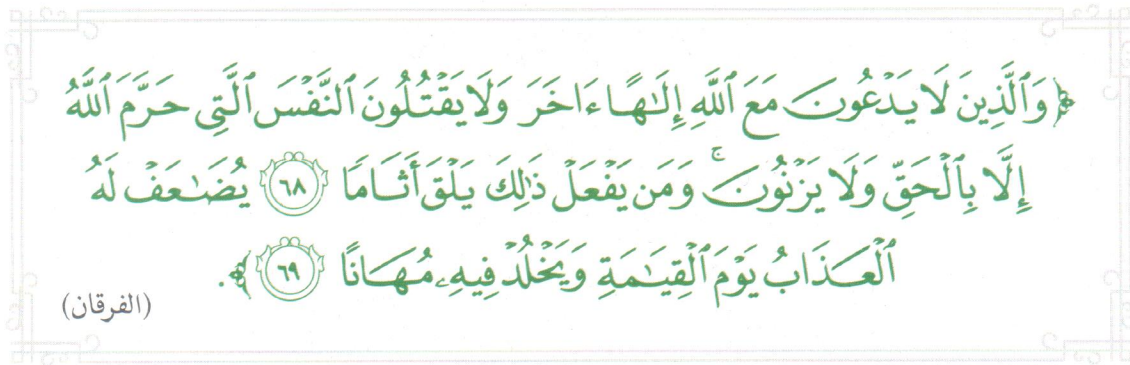 ﴿وَٱلَّذِينَ لَا يَدْعُونَ مَعَ ٱللَّهِ إِلَٰهًا ءَاخَرَ وَلَا يَقْتُلُونَ ٱلنَّفْسَ ٱلَّتِى حَرَّمَ ٱللَّهُ
إِلَّا بِٱلْحَقِّ وَلَا يَزْنُونَ ۚ وَمَن يَفْعَلْ ذَٰلِكَ يَلْقَ أَثَامًا ٦٨ يُضَٰعَفْ لَهُ
ٱلْعَذَابُ يَوْمَ ٱلْقِيَٰمَةِ وَيَخْلُدْ فِيهِۦ مُهَانًا ٦٩﴾.
(الفرقان)